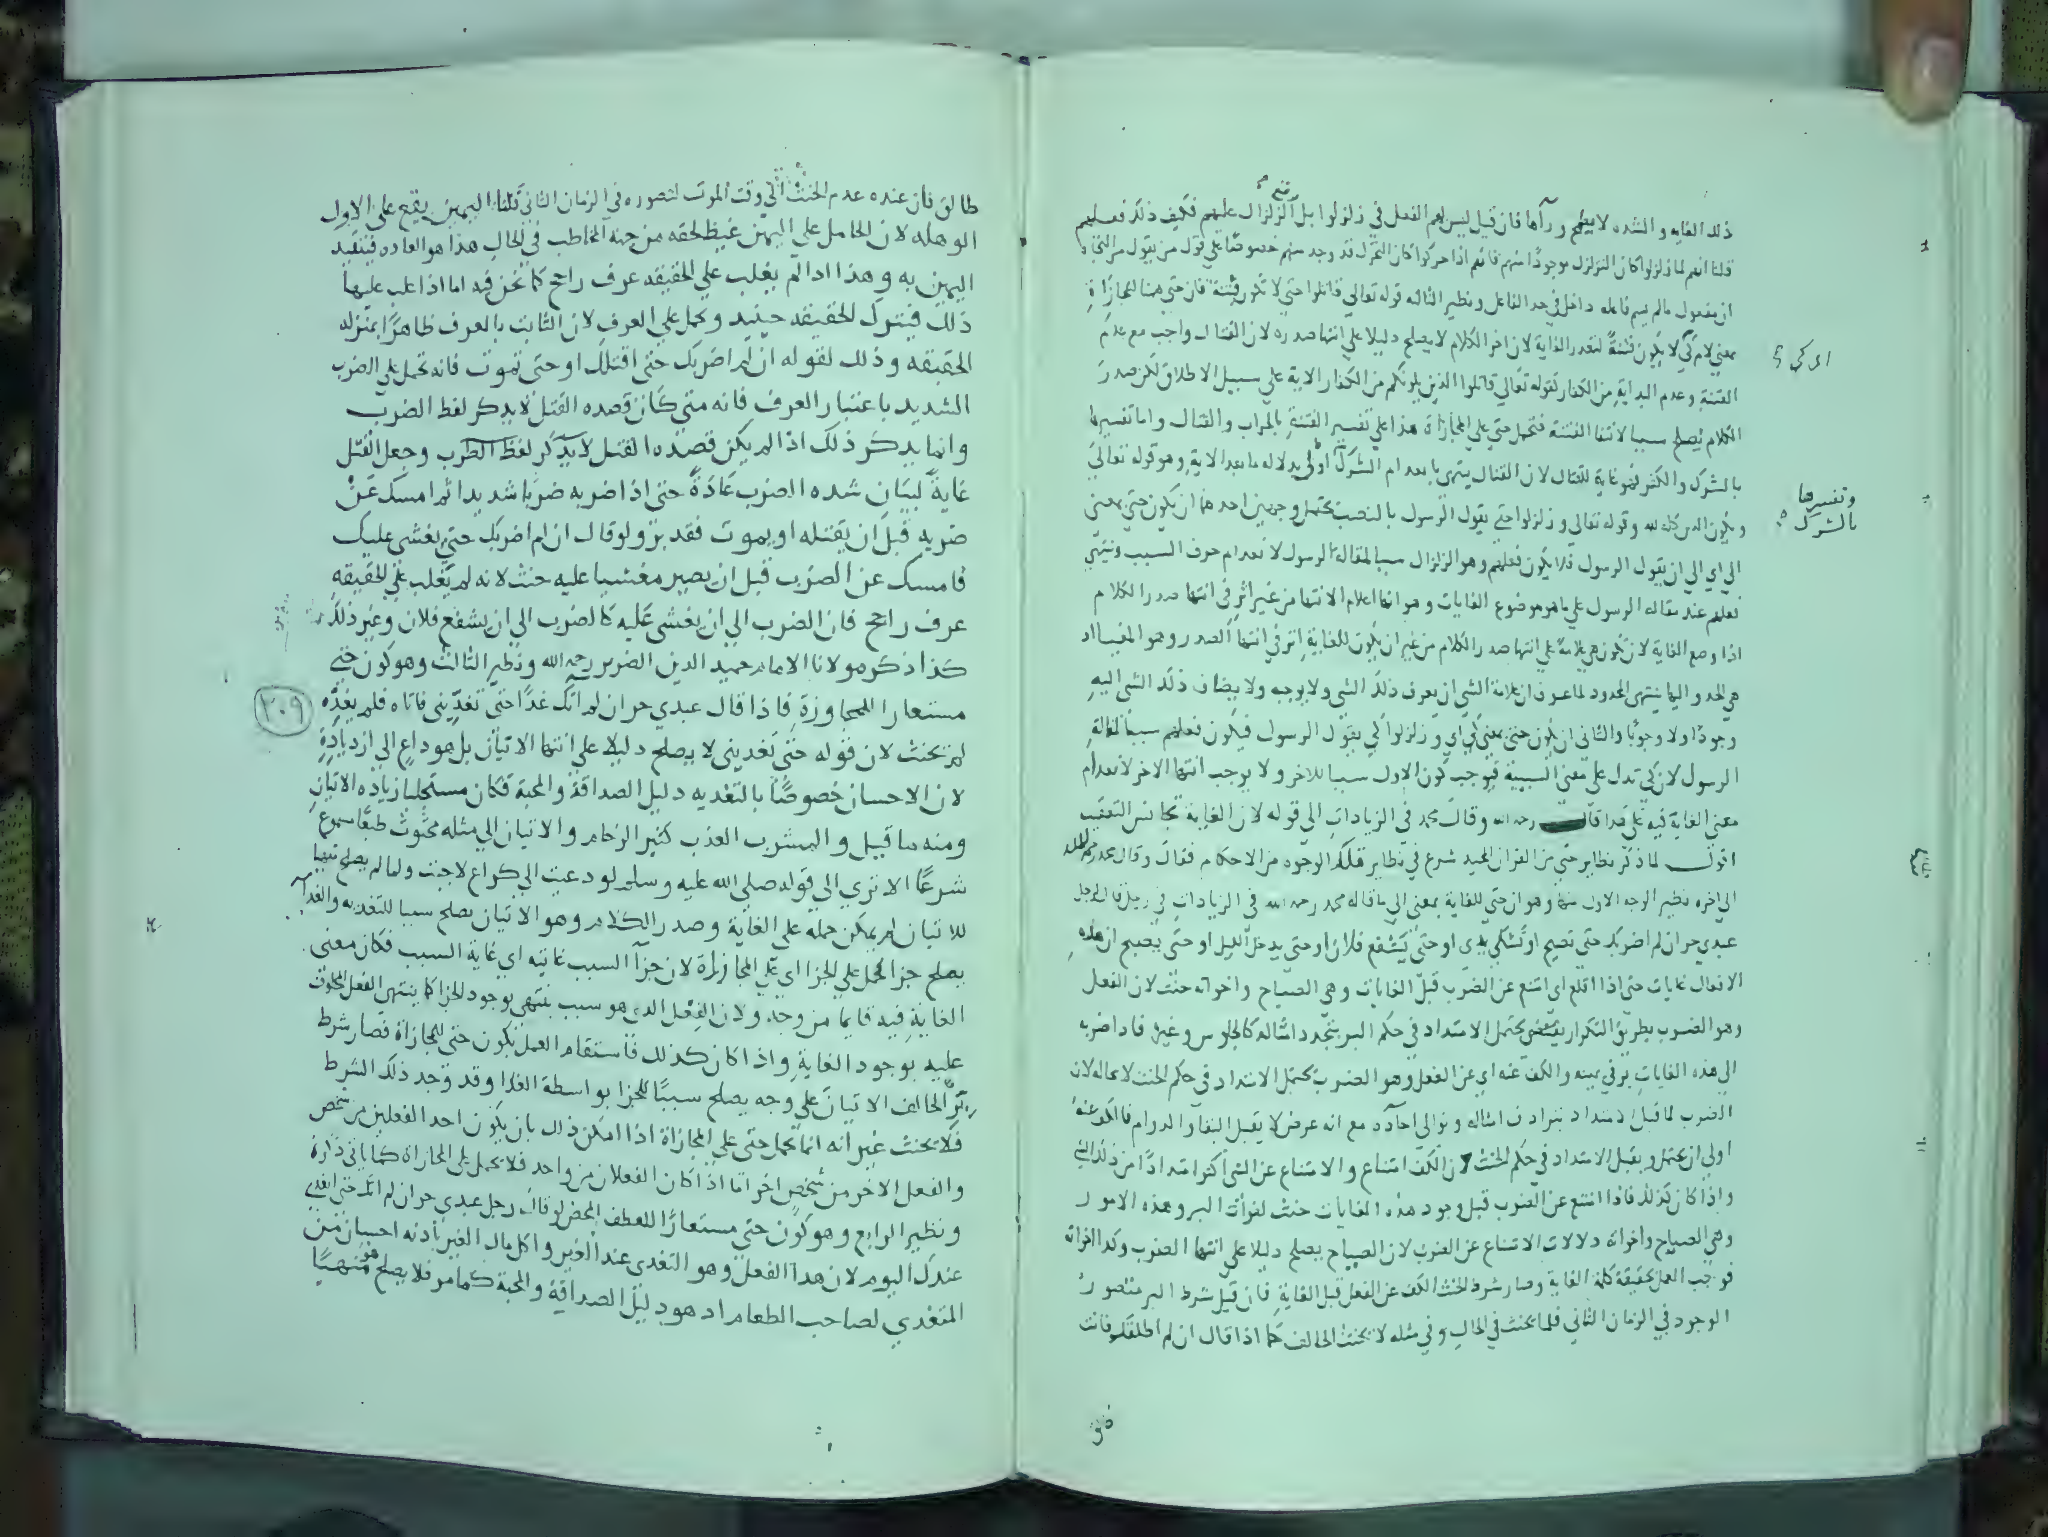 ذلك الغايه والشده لا يطمع ورآها فان قيل ليس لهم الفعل في زلزلوا بل الزلزال عليهم فكيف ذلك فعلهم
قلنا انهم لما زلزلوا كان التزلزل موجودًا منهم فانهم اذا حركوا كان التحرك قد وجد منهم خصوصًا علي قول من يقول من النحاة
ان مفعول مالم يسم فاعله داخل في حد الفاعل ونظير الثالث قوله تعالي قاتلوا حتي لا تكون فتنة فان حتي هنا للمجازاة
بمعني لام كي لا يكون فتنةً لتعذر الغاية لان اخر الكلام لا يصلح دليلا علي انتها صدره لان القتال واجب مع عدم
الفتنة وعدم البداية من الكفار لقوله تعالي قاتلوا الذين يلونكم من الكفار الاية علي سبيل الاطلاق لكن صدر
الكلام يصلح سببا لانتفا الفتنة فتحمل حتي علي المجازاة هذا علي تفسير الفتنة بالحراب والقتال واما تفسيرها
بالشرك والكفر فهو غاية للقتال لان القتال ينتهي بانعدام الشرك اولي بدلاله ما بعد الاية وهو قوله تعالي
ويكون الدين كله لله وقوله تعالي وزلزلوا حتي يقول الرسول بالنصب يحتمل وجهين احدهما ان يكون حتي بمعني
الي اي الي ان يقول الرسول فلا يكون فعلهم وهو الزلزال سببا لمقالة الرسول لانعدام حرف السبب وينتهي
فعلهم عند مقالة الرسول علي ما هو موضوع الغايات وهو انها اعلام الانتها من غير اثر في انتها صدر الكلام
اذا وضع الغاية لان تكون هي علامةً علي انتها صدر الكلام من غير ان يكون للغاية اثر في انتها الصدر وهو المغيا اذ
هي الحد واليها ينتهي المحدود لما عرف ان علامة الشي ان يعرف ذلك الشي ولا يوجبه ولا يضاف ذلك الشي اليه
وجودًا ولا وجوبًا والثاني ان يكون حتي بمعني كي اي وزلزلوا كي يقول الرسول فيكون فعلهم سببا لمقالة
الرسول لان كي تدل علي معني السببية فيوجب كون الاول سببا للاخر ولا يوجب انتها الاخر لانعدام
معني الغاية فيه علي هذا قال رحمه الله وقال محمد في الزيادات الي قوله لان الغاية تجانس التعقيب
اقول لما ذكر نظاير حتي من القران المجيد شرع في نظاير تلك الوجوه من الاحكام فقال وقال محمد رحمه الله
الي اخره نظير الوجه الاول منها وهو ان حتي للغاية بمعني الي ما قاله محمد رحمه الله في الزيادات في رجل قال لرجل
عبدي حر ان لم اضربك حتي تصيح او تشتكي يدي او حتي يشفع فلان او حتي يدخل الليل او حتي يصبح ان هذه
الافعال غايات حتي اذا اقلع اي امتنع عن الضرب قبل الغايات وهي الصياح واخواته حنث لان الفعل
وهو الضرب بطريق التكرار يحتمل الامتداد في حكم البر بتجدد امثاله كالجلوس وغيره فاذا ضربه
الي هذه الغايات بر في يمينه والكف عنه اي عن الفعل وهو الضرب يحتمل الامتداد في حكم الحنث لا محاله لان
الضرب لما قبل الامتداد بترادف امثاله وتوالي احاده مع انه عرض لا يقبل البقا والدوام فالكف عنه
اولي ان يحتمل ويقبل الامتداد في حكم الحنث لان الكف امتناع والامتناع عن الشي اكثر امتدادًا من ذلك الشي
واذا كان كذلك فاذا امتنع عن الضرب قبل وجود هذه الغايات حنث لفوات البر وهذه الامور
وهي الصياح واخواته دلالات الامتناع عن الضرب لان الصياح يصلح دليلا علي انتها الضرب وكذا اخواته
فوجب العمل بحقيقة كلمة الغاية وصار شرط الحنث الكف عن الفعل قبل الغاية فان قيل شرط البر متصور
الوجود في الزمان الثاني فلما يحنث في الحال وفي مثله لا يحنث الحالف كما اذا قال ان لم اطلقك فانت
اي كي
وتفسيرها
بالشرك
طالق
طالق فان عنده عدم الحنث الي وقت الموت لتصوره في الزمان الثاني قلنا اليمين يقع علي الاول
الوهله لان الحامل علي اليمين غيظ لحقه من جهة المخاطب في الحال هذا هو العاده فيتقيد
اليمين به وهذا اذا لم يغلب علي الحقيقه عرف راجح كما نحن فيه اما اذا غلب عليها
ذلك فيترك الحقيقه حينيذ ويحمل علي العرف لان الثابت بالعرف ظاهرًا بمنزله
الحقيقه وذلك لقوله ان لم اضربك حتي اقتلك او حتي تموت فانه يحمل علي الضرب
الشديد باعتبار العرف فانه متي كان قصده القتل لا يذكر لفظ الضرب
وانما يذكر ذلك اذا لم يكن قصده القتل لا يذكر لفظ الضرب وجعل القتل
غايةً لبيان شده الضرب عادةً حتي اذا ضربه ضربا شديدا ثم امسك عن
ضربه قبل ان يقتله او يموت فقد بر ولو قال ان لم اضربك حتي يغشي عليك
فامسك عن الضرب قبل ان يصير مغشيا عليه حنث لانه لم يغلب علي الحقيقه
عرف راجح فان الضرب الي ان يغشي عليه كالضرب الي ان يشفع فلان وغير ذلك
كذا ذكر مولانا الامام حميد الدين الضرير رحمه الله ونظير الثالث وهو كون حتي
مستعارا للمجاوزة فاذا قال عبدي حر ان لم اتك غدًا حتي تغديني فاتاه فلم يغده
لم يحنث لان قوله حتي تغديني لا يصلح دليلا علي انتها الاتيان بل هو داع الي ازدياده
لان الاحسان خصوصًا بالتغديه دليل الصداقة والمحبة فكان مستجلبا زياده الاتيان
ومنه ما قيل والمشرب العذب كثير الزحام والاتيان الي مثله محثوث طبعًا مسموع
شرعًا الا تري الي قوله صلي الله عليه وسلم لو دعيت الي كراع لاجبت ولما لم يصلح منهيا
للاتيان لم يمكن حمله علي الغاية وصدر الكلام وهو الاتيان يصلح سببا للتغديه والغدا
يصلح جزا فحمل علي الجزا اي علي المجازاة لان جزآ السبب غايته اي غاية السبب فكان معني
الغاية فيه قايما من وجه ولان الفعل الذي هو سبب ينتهي بوجود الجزا كما ينتهي الفعل المحلوف
عليه بوجود الغاية واذا كان كذلك فاستقام العمل بكون حتي للمجازاة فصار شرط
بر الحالف الاتيان علي وجه يصلح سببًا للجزا بواسطة الغدا وقد وجد ذلك الشرط
فلا يحنث غير انه انما يحمل حتي علي المجازاة اذا امكن ذاك بان يكون احد الفعلين من شخص
والفعل الاخر من شخص اخر اما اذا كان الفعلان من واحد فلا تحمل علي المجازاة كما ياتي ذكره
ونظير الرابع وهو كون حتي مستعارًا للعطف المحض لو قال رجل عبدي حر ان لم اتك حتي اتغدي
عندك اليوم لان هذا الفعل وهو التغدي عند الغير واكل مال الغير باذنه احسان من
المتغدي لصاحب الطعام اذ هو دليل الصداقة والمحبة كما مر فلا يصلح منهيًا
٢٠٩